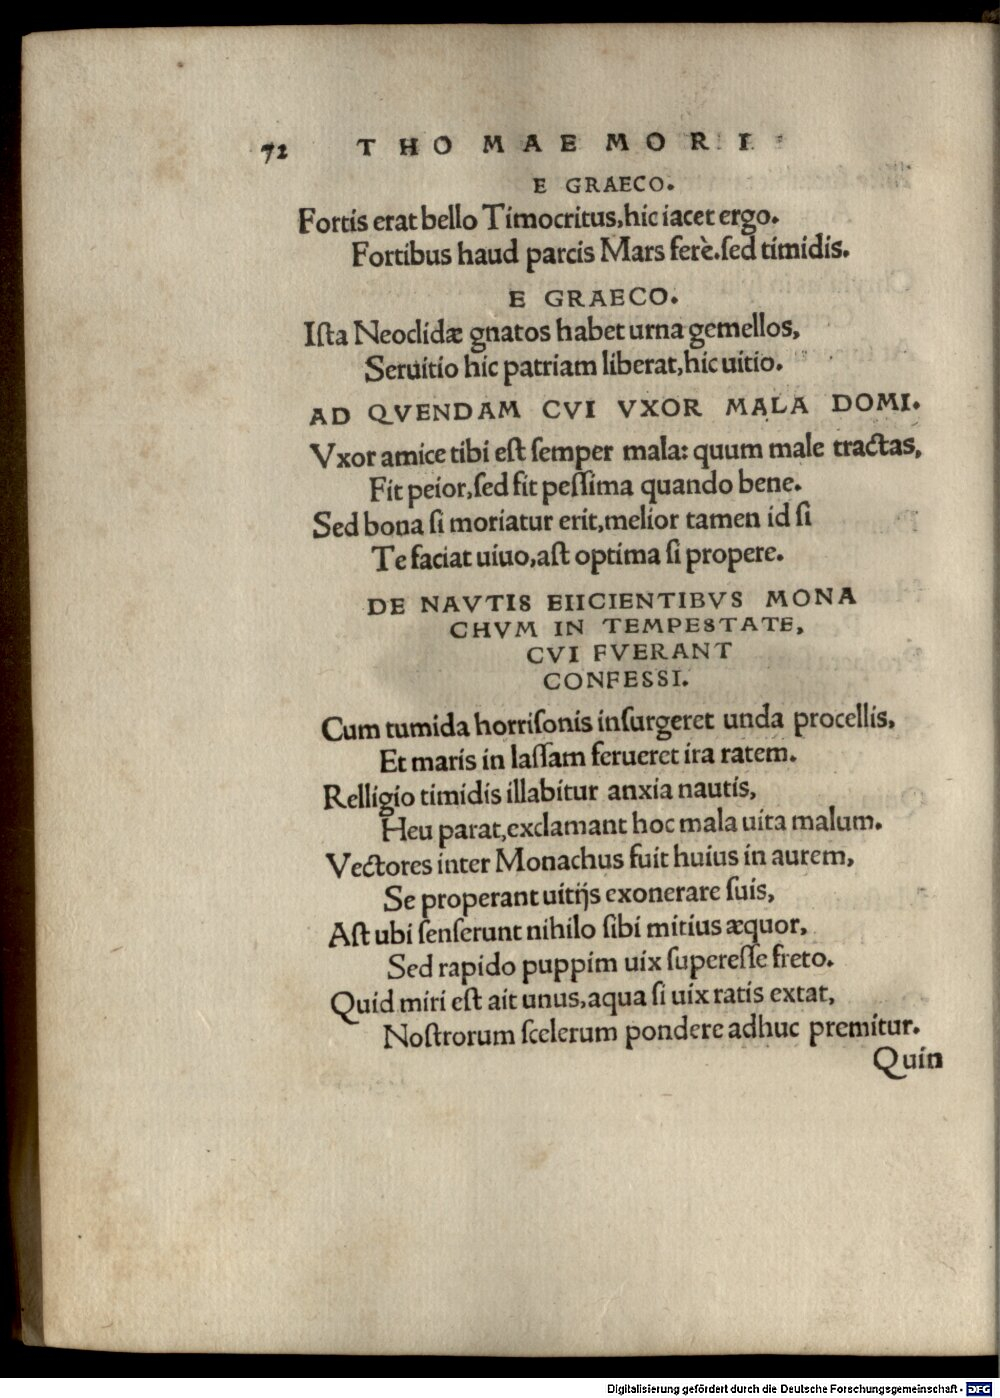 72 THOMAE MORI
E GRAECO.
Fortis erat bello Timocritus, hic iacet ergo.
Fortibus haud parcis Mars ferè. sed timidis.
E GRAECO.
Iſta Neoclidæ gnatos habet urna gemellos,
Seruitio hic patriam liberat, hic uitio.
AD QVENDAM CVI VXOR MALA DOMI.
Vxor amice tibi eſt ſemper mala: quum male tractas,
Fit peior, ſed fit peſſima quando bene.
Sed bona ſi moriatur erit, melior tamen id ſi
Te faciat uiuo, aſt optima ſi propere.
DE NAVTIS EIICIENTIBVS MONA
CHVM IN TEMPESTATE,
CVI FVERANT
CONFESSI.
Cum tumida horriſonis inſurgeret unda procellis,
Et maris in laſſam ferueret ira ratem.
Relligio timidis illabitur anxia nautis,
Heu parat, exclamant hoc mala uita malum.
Vectores inter Monachus fuit huius in aurem,
Se properant uitijs exonerare ſuis,
Aſt ubi ſenſerunt nihilo ſibi mitius æquor,
Sed rapido puppim uix ſupereſſe freto.
Quid miri eſt ait unus, aqua ſi uix ratis extat,
Noſtrorum ſcelerum pondere adhuc premitur.
Quin
Digitalisierung gefördert durch die Deutsche Forschungsgemeinschaft - DFG